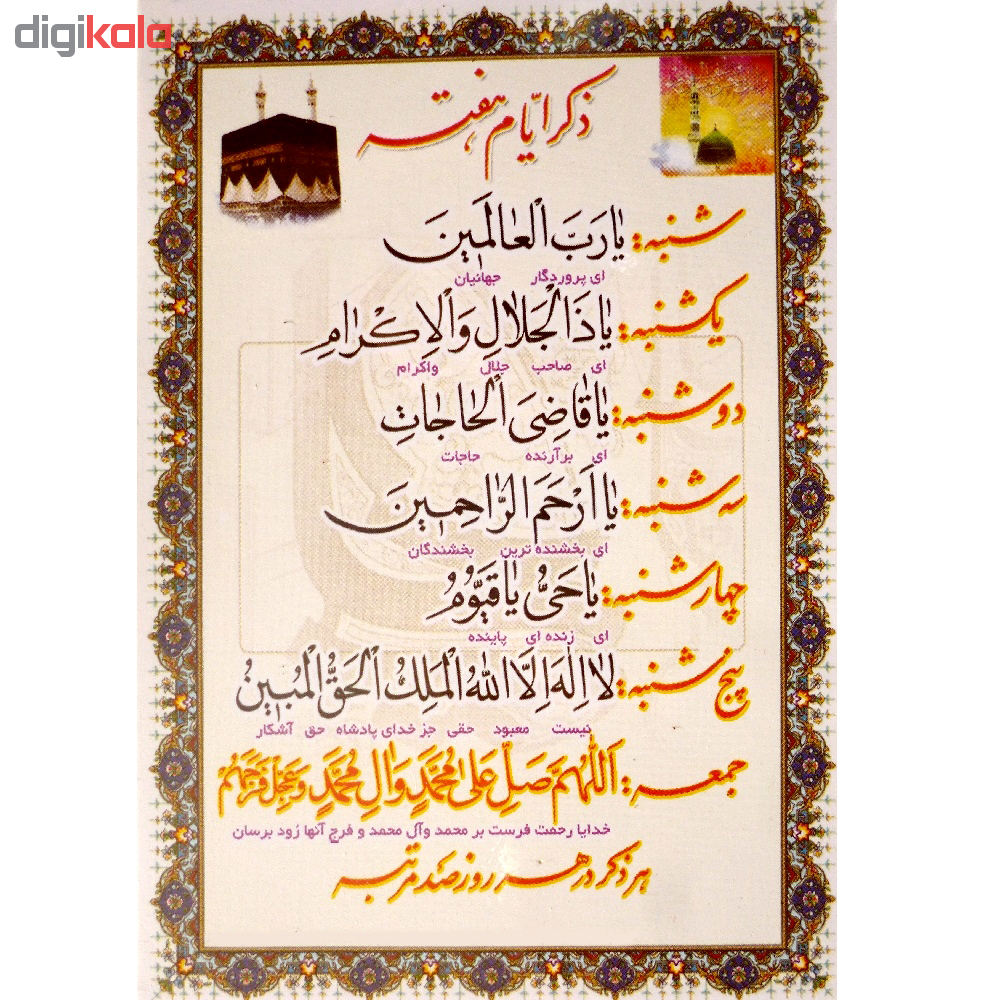 digikala
ذکر ایّام هفته
شنبه: یٰا رَبَّ الْعٰالَمینَ
ای پروردگار جهانیان
یکشنبه: یٰا ذَالْجَلالِ وَالْاِکْرٰامِ
ای صاحب جلال واکرام
دوشنبه: یٰا قٰاضِیَ الْحٰاجٰاتِ
ای برآرنده حاجات
سه شنبه: یٰا اَرْحَمَ الرّٰاحِمینَ
ای بخشنده ترین بخشندگان
چهارشنبه: یٰا حَیُّ یٰا قَیُّومُ
ای زنده ای پاینده
پنج شنبه: لٰا اِلٰهَ اِلَّا اللّٰهُ الْمَلِکُ الْحَقُّ الْمُبینُ
نیست معبود حقی جز خدای پادشاه حق آشکار
جمعه: اَللّٰهُمَّ صَلِّ عَلیٰ مُحَمَّدٍ وَاٰلِ مُحَمَّدٍ وَعَجِّلْ فَرَجَهُمْ
خدایا رحمت فرست بر محمد وآل محمد و فرج آنها زود برسان
هر ذکر در هر روز صد مرتبه